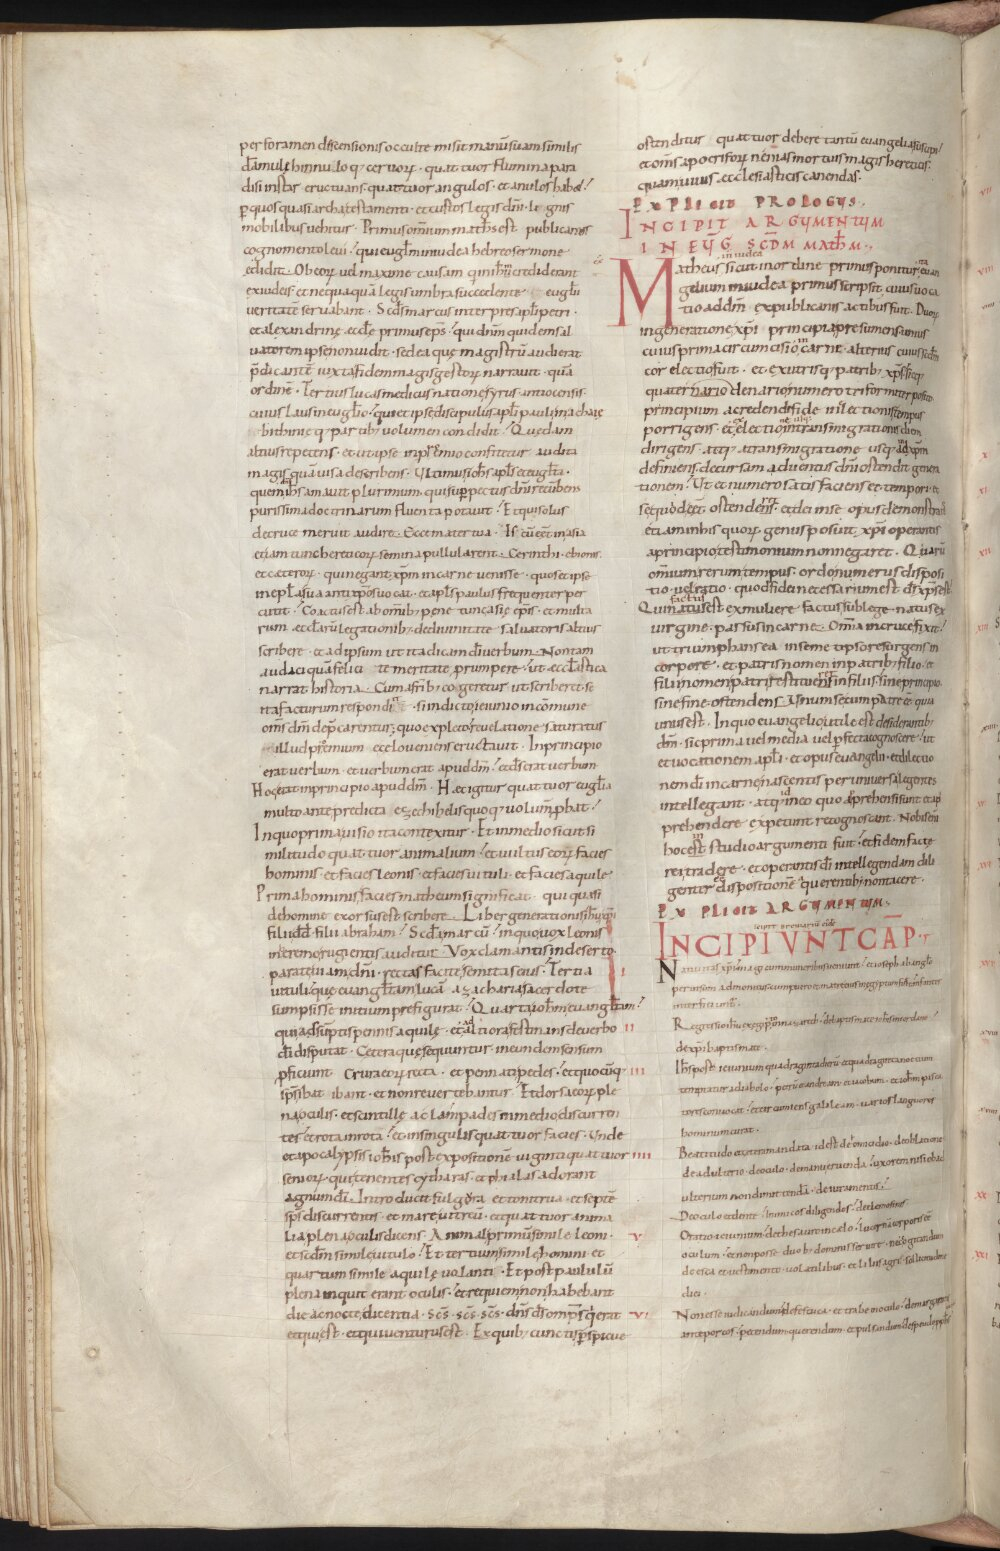 per foramen discensionis occulte misit manũ suam similis
dãmule hinnulo q; ceruorꝝ · quattuor flumina para
disi instar eructuans · quattuor angulos · et anulos habẽs
ꝑ quos quasi archa testamenti · et custos legis dñi · lignis
mobilibus uehitur · Primus omnium matheus est publicanus
cognomento leui · qui eugłm in iudea hebreo sermone
edidit · Ob eorꝝ uel maxime causam qui in ihm crediderant
ex iudeis · et nequaquã legis umbra succedente euglii
ueritate seruabant · Scds marcus interpres apli petri ·
et alexandrine ecclę primus eps · qui dnm quidem sal
uatorem ipse non uidit · sed ea quę magistrũ audierat
p̃dicantẽ iuxta fidem magis gestorꝝ narrauit · quã
ordinẽ · Tertius lucas medicus natione syrus antiocensis ·
cuius laus in euglio · qui et ipse discipulus apli pauli in achaię
bithinię q; partib; uolumen condidit · Quędam
altius repetens · et ut ipse in p̃hemio confitetur audita
magis quã uisa describens · Ultimus iohs apłs et eugłta ·
quem ihs amauit plurimum · qui sup pectus dñi recũbens
purissima doctrinarum fluenta potauit · Et qui solus
de cruce meruit audire · Ecce mater tua · Is cũ eẽt in asia
etiam tunc hereticorꝝ semina pullularent · Cerinthi · ebionis
et ceterorꝝ · qui negant xpm in carne uenisse · quos et ipse
in epła sua antixpos uocat · et apłs paulus frequenter per
cutit · Coactus est ab omib; pene tunc asię epis · et multa
rum ecclarũ legationib; de diuinitate saluatoris altius
scribere · et ad ipsum ut ita dicam di uerbum · Non tam
audaci quã felici temeritate prumpere · ut ecclastica
narrat historia · Cum a frib; cogeretur ut scriberet · se
ita facturum respondit · si indicto ieiunio in comune
oms dm dep̃carentur · quo expleto reuelatione saturatus
illud p̃hemium e celo ueniens eructauit · In principio
erat uerbum · et uerbum erat apud dm · et ds erat uerbum
Hoc erat in principio apud dm · Hęc igitur quattuor euglia
multo ante predicta ezechihelis quoq; uolum̃ p̃bat ·
In quo prima uisio ita contexitur · Et in medio sicut si
militudo quattuor animalium · et uultus eorꝝ facies
hominis · et facies leonis · et facies uituli · et facies aquile
Prima hominis facies matheum significat · qui quasi
de homine exorsus est scribere · Liber generationis ihu xpi
filii dd · filii abraham · Scda marcũ · in quo uox leonis
in eremo rugientis auditur · Vox clamantis in deserto
parate uiam dñi · rectas facite semitas eius · Tertia
uituli · quę euangłtam lucã a zacharia sacerdote
sumpsisse initium prefigurat · Quarta iohm euangłtam
qui adsũptis pennis aquilę · et ad altiora festinans de uerbo
di disputat · Cetera quę sequuntur in eundem sensum
ꝓficiunt Crura eorꝝ recta · et pennati pedes · et quocũq;
sp̃s ibat · ibant · et non reuertebantur · Et dorsa eorꝝ ple
na oculis · et scintille ac lampades in medio discurren
tes · et rota in rota · et in singulis quattuor facies · Unde
et apocalypsis iohis post expositionẽ uiginti quattuor
seniorꝝ · qui tenentes cytharas · et phialas adorant
agnum di · Introducit fulgora et tonitrua · et septẽ
sps discurrentes · et mare uitreũ · et quattuor anima
lia plena oculis dicens · Animal primũ simile leoni ·
et scdm simile uitulo · Et tertium simile homini · et
quartum simile aquilę uolanti · Et post paululũ
plena inquit erant oculis · et requiem non habebant
die ac nocte dicentia · scs · scs · scs · dñs ds omps qui erat
et qui est · et qui uenturus est · Ex quib; cunctis pspicue
ostenditur quattuor debere tantũ euangelia suscipi ·
et oms apocriforꝝ nenias mortuis magis hereticis ·
quam uiuis ecclesiasticis canendas ·
EXPLICIT PROLOGUS ·
INCIPIT ARGUMENTUM
IN EUG SCDM MATHM ·
in iudea
Matheus sicut in ordine primus ponitur · ita euan
gelium in iudea primus scripsit cuius uoca
tio ad dm ex publicanis actibus fuit · Duorꝝ
in generatione xpi principia presumens · unius
cuius prima circumcisio in carne · alterius cuius scdm
cor electio fuit · et ex utrisq; patrib; xps · sicq;
quaternario denario numero triformiter posito
principium a credendi fide in electionis tempus
porrigens · et ex electione in transmigrationis diem
dirigens · atq; a transmigratione usq; ad xpm
definiens · decursam aduentus dñi ostendit genera
tionem · Ut et numero satisfaciens et tempori · et
se quid eẽt ostenderet · et dei in se opus demonstrans
etiam in his quorꝝ genus posuit · xpi operantis
a principio testimonium non negaret · Quarũ
omium rerum tempus · ordo numerus disposi
tio uel ratio · quod fidei necessarium est ds xps est
Qui factus est ex muliere factus sub lege · natus ex
uirgine · passus in carne · Omia in cruce fixit ·
ut triumphans ea in semetipso resurgens in
corpore · et patris nomen in patrib; filio · et
filii nomen patri restituens in filiis · sine principio
sine fine · ostendens · Unum se cum patre eẽ · quia
unus est · In quo euangelio utile est desiderantib;
dm · sic prima uel media uel ꝑfecta cognoscere · ut
et uocationem apli · et opus euangelii · et dilectio
nem di in carne nascentis per uniuersa legentes
intellegant · atq; id in eo quo apprehensi sunt et ap
prehendere expetunt recognoscant · Nobis enim
hoc est in studio argumenti fuit · et fidem factę
rei tradere · et operantis di intellegendam dili
genter eẽ dispositionẽ querentib; non tacere ·
EXPLICIT ARGUMENTUM ·
INCIPIUNT CAP ·
Natiuitas xpi · magi cum muneribus ueniunt · et ioseph ab anglo
per
interfecti
Regressio ihu ex egypto in nazareth · de baptismate iohis in iordane ·
de xpi baptismate ·
I
Ihs post ieiunium quadraginta dierũ et quadraginta noctium
II
temptatur a diabolo · petrũ andream et iacobum · et iohm pisca
tores conuocat · et circumiens galileam · uarios languores
hominum curat ·
III
Beatitudo et cetera mandata · id est de homicidio · de oblatione
de adulterio · de oculo · de manu eruenda · uxorem nisi ob ad
ulterium non dimittendã · de iuramentis ·
IIII
De oculo et dente · inimicos diligendos · de elemosinis
Oratio et ieiunium · de thesauro in cęlo · lucerna corporis eẽ
V
oculum · et non posse duob; dominis seruire · nec cogitandum
de esca et uestimento · uolatilibus · et liliis agri · sollicitudine
diei ·
VI
Non esse iudicandum · de festuca · et trabe in oculo · de margaritis
ante porcos · petendum · querendum · et pulsandum · de pseudopphis